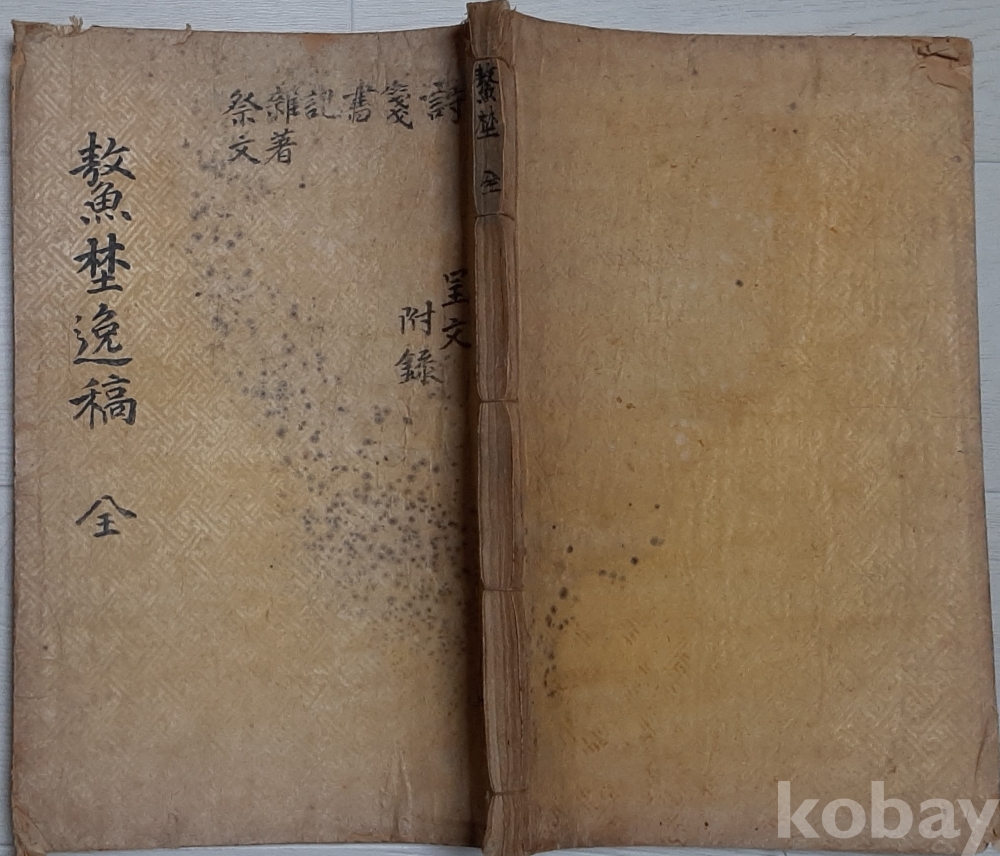 鰲埜逸稿 全
詩
箋
書
記
雜著
祭文
呈文
附錄
鰲埜 全
kobay